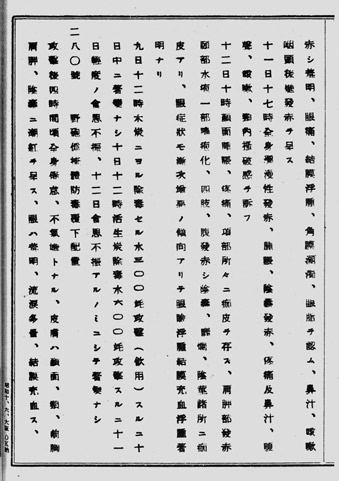 赤シ羞明、眼痛、結膜浮腫、角膜溷濁、眼脂ヲ認ム、鼻汁、咳嗽
咽頭後壁發赤ヲ呈ス
十一日十七時全身瀰漫性發赤、肺眼、陰嚢發赤、疼痛及鼻汁、嗄
聲、咳嗽、胸內搔破感ヲ訴フ
十二日十時顏面腫脹、疼痛、項部所々ニ痂皮ヲ存ス、肩胛部發赤
部水疱一部 化、四肢、腹發赤シ陰嚢、 、陰莖諸所ニ痂
皮アリ、眼症狀モ漸次增惡ノ傾向アリテ眼瞼浮腫結膜充血浮腫著
明ナリ
九日十二時木炭ニヨル除毒セル水三〇〇竓攻擊(飲用)スルニ十
日中ニ著變ナシ十日十二時活生炭除毒水六〇〇竓攻擊スルニ十一
日輕度ノ食思不振、十二日食思不振アルノミニシテ著變ナシ
二八〇號 野砲偵察體防毒覆下配置
攻擊後四時間頃全身倦怠、不氣嫌トナル、皮膚ハ顏面、頸、前胸
肩胛、陰嚢ニ潮紅ヲ呈ス、眼ハ羞明、流淚多量、結膜充血ス、